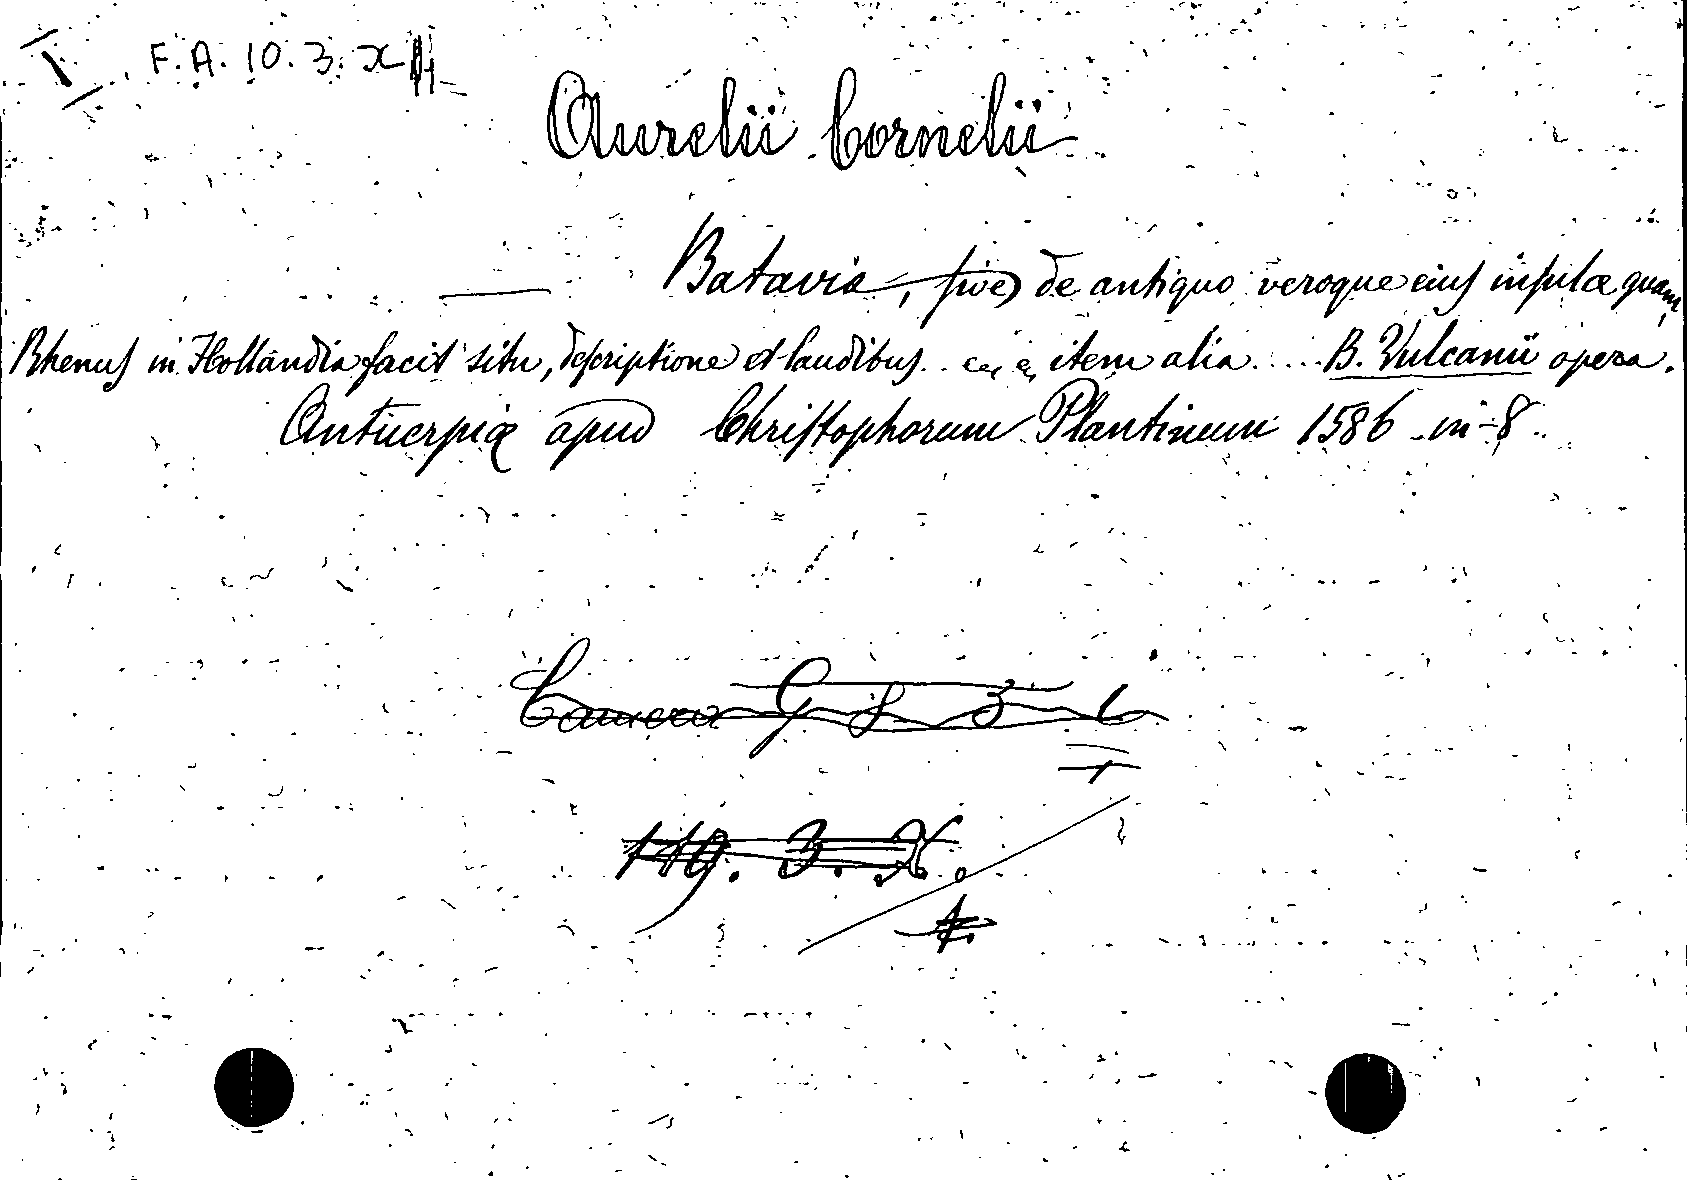 F. A. 10. 3. x
Aurelii Cornelii
Batavia, sive de antiquo veroque eius insulæ quam
Rhenus in Hollandia facit situ, descriptione et laudibus .. item alia ..... B. Vulcanii opera.
Antuerpiæ apud Christophorum Plantinum 1586 in-8
Camera G 8 3 6
119. 3. X.